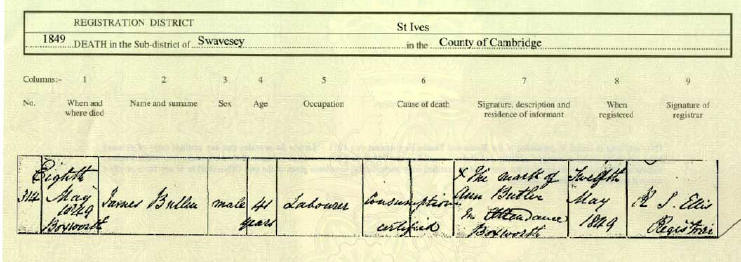 REGISTRATION DISTRICT St Ives
1849 DEATH in the Sub-district of Swavesey in the County of Cambridge
Columns:- 1 2 3 4 5 6 7 8 9
No. When and where died Name and surname Sex Age Occupation Cause of death Signature, description and residence of informant When registered Signature of registrar
314 Eighth May 1849 Boxworth James male 41 years Labourer Consumption certified X The mark of Ann Butler In Attendance Boxworth Twelfth May 1849 Ellis Registrar